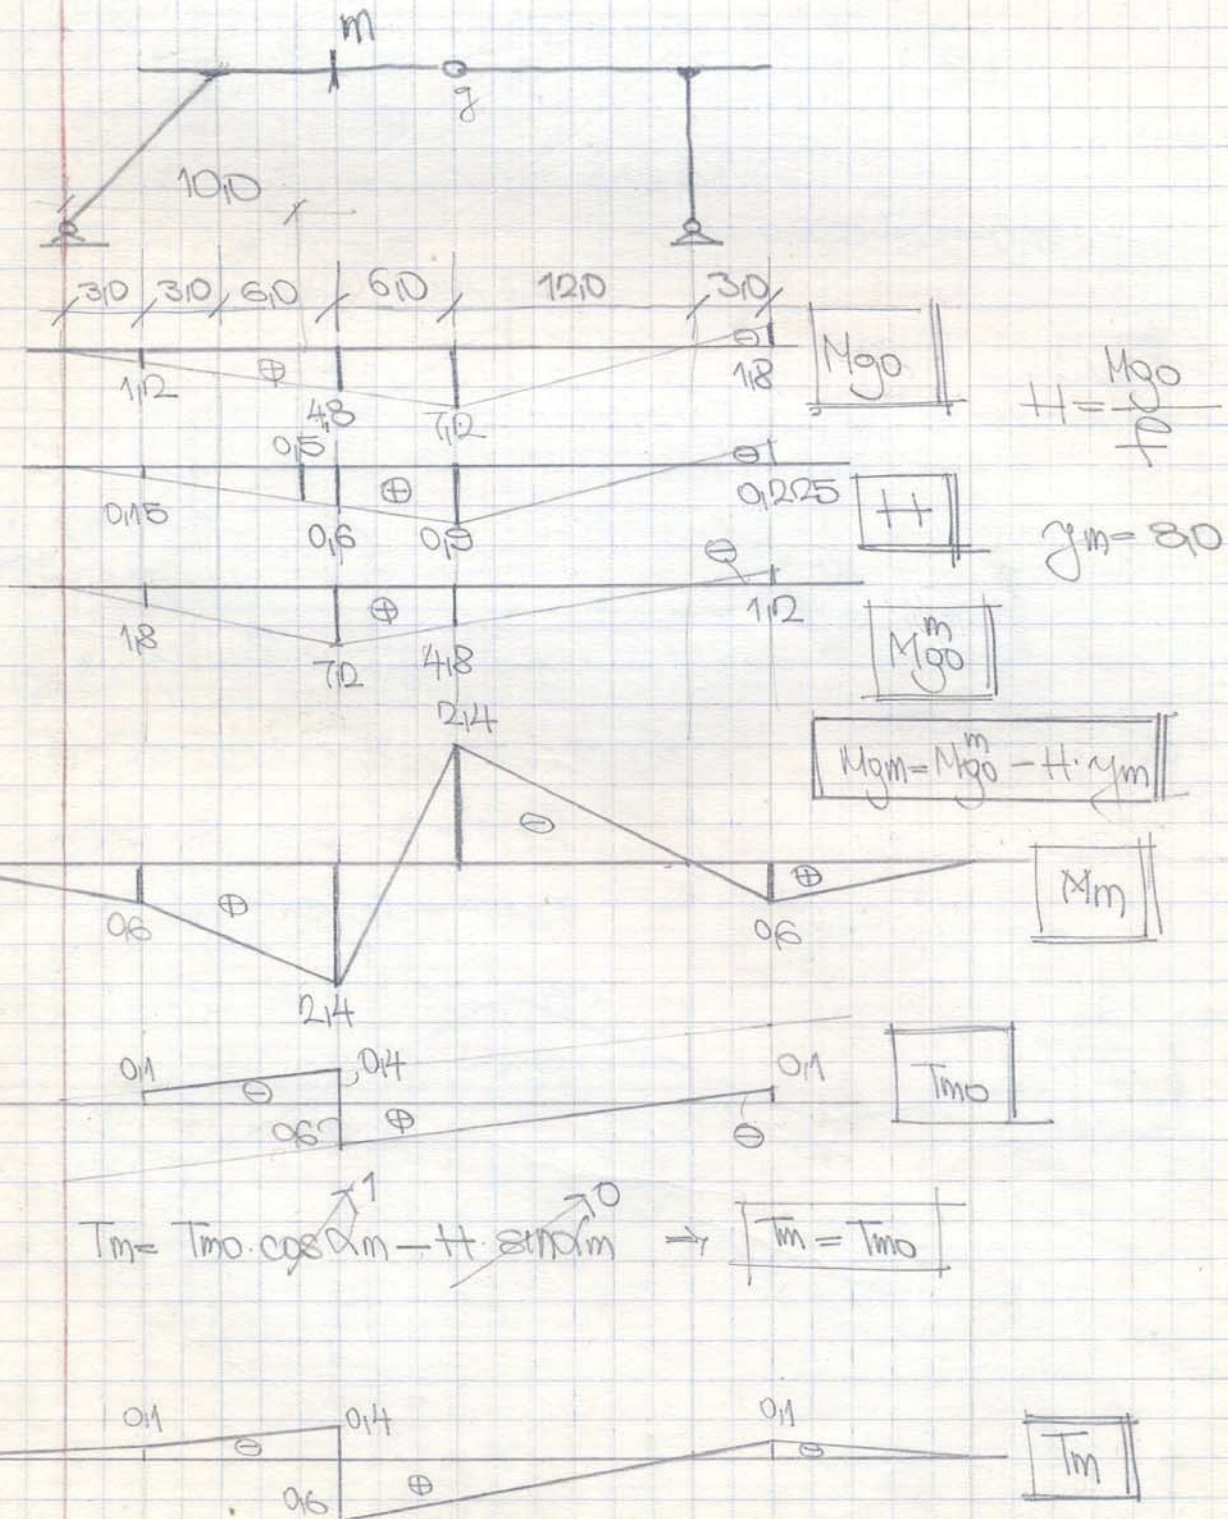 m
g
10,0
3,0 3,0 6,0 6,0 12,0 3,0
⊕ ⊖
1,2 4,8 7,2 1,8
Mgo
H = Mgo / f
0,5
⊕ ⊖
0,15 0,6 0,9 0,225
H
ym = 8,0
⊕ ⊖
1,8 7,2 4,8 1,2
Mgo^m
2,4
Mgm = Mgo^m - H · ym
⊖
⊕ ⊕
0,6 2,4 0,6
Mm
0,1 0,4 0,1
⊖ ⊕ ⊖
0,6
Tmo
1 0
Tm = Tmo · cos αm - H · sin αm → Tm = Tmo
0,1 0,4 0,1
⊖ ⊕ ⊖
0,6
Tm